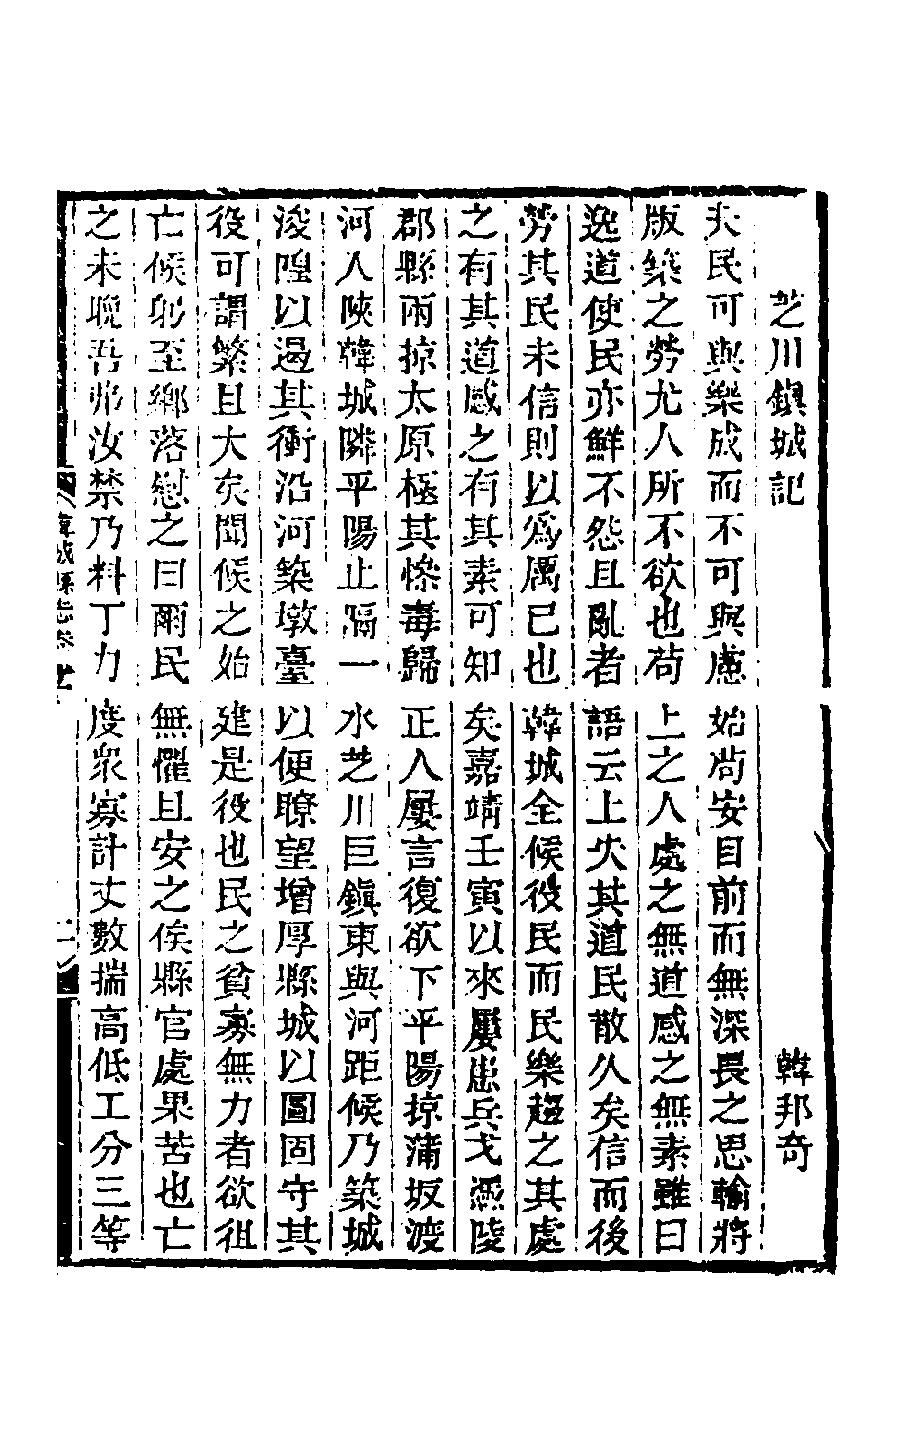 芝川鎮城記　韓邦奇
夫民可與樂成而不可與慮始尚安目前而無深長之思輸將
版築之勞尤人所不欲也苟上之人處之無道感之無素雖曰
逸道使民亦鮮不怨且亂者語云上失其道民散久矣信而後
勞其民未信則以爲厲已也韓城全候役民而民樂趨之其處
之有其道感之有其素可知矣嘉靖壬寅以來屢患兵戈憑陵
郡縣兩掠太原極其慘毒歸正人屢言復欲下平陽掠蒲坂渡
河入陝韓城隣平陽止隔一水芝川巨鎮東與河距候乃築城
浚隍以遏其衝沿河築墩臺以便瞭望增厚縣城以圖固守其
役可謂繁且大矣聞候之始建是役也民之貧寡無力者欲徂
亡候躬至鄉落慰之曰爾民無懼且安之俟縣官處果苦也亡
之未晚吾弗汝禁乃料丁力度衆寡計丈數揣高低工分三等
韓城縣志卷